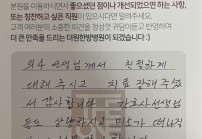 본원을 이용하시면서 좋으셨던 점이나 개선되었으면 하는 사항,
또는 칭찬하고 싶은 직원이 있으시다면 알려주세요.
고객 여러분의 소중한 의견을 정성껏 귀담아듣고 반영하여
더 큰 만족을 드리는 대원한방병원이 되겠습니다 :)
의4 선생님께서 친절하게
대해 주시고 치료 잘해 주셔
서 감사합니다 간호사선생님
들도 미소가 떠나지